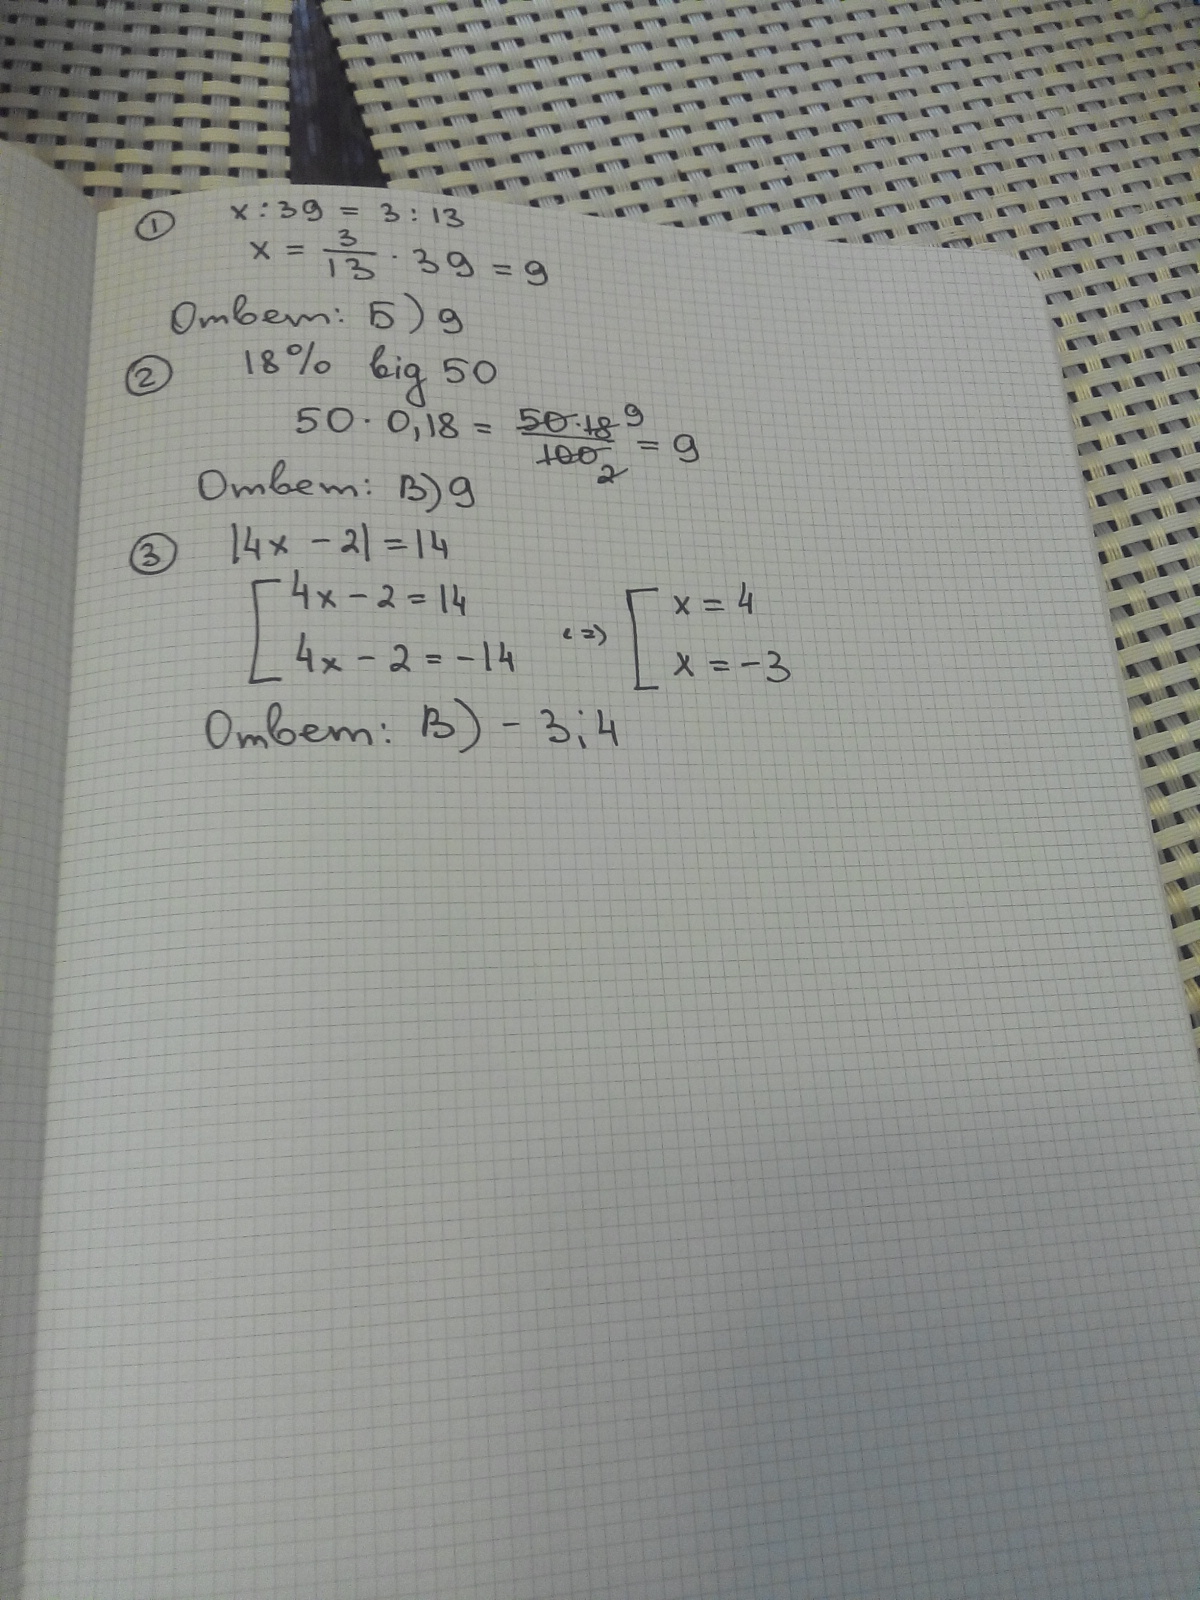 ① x : 39 = 3 : 13
x = 3/13 · 39 = 9
Ответ: Б) 9
② 18% від 50
50 · 0,18 = 50·18 9/100 2 = 9
Ответ: В) 9
③ |4x - 2| = 14
[ 4x - 2 = 14
4x - 2 = -14 <=> [ x = 4
x = -3
Ответ: В) - 3; 4